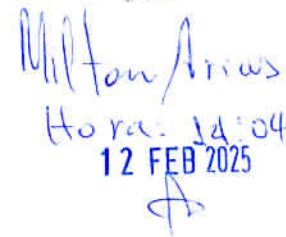 Milton Arias
Hora: 14:04
12 FEB 2025